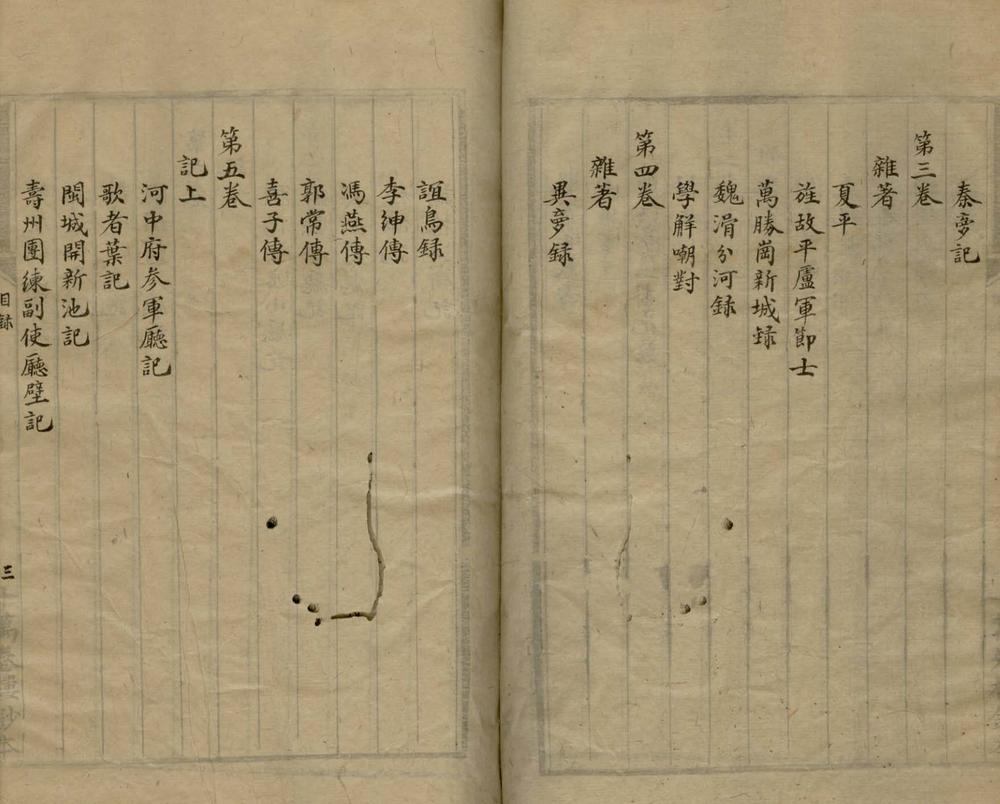 秦夣記
第三卷
雜著
夏平
旌故平盧軍節士
萬勝崗新城録
魏滑分河録
學解嘲對
第四卷
雜著
異夣録
誼鳥録
李紳傳
馮燕傳
郭常傳
喜子傳
第五卷
記上
河中府参軍廳記
歌者葉記
閩城開新池記
壽州團練副使廳壁記
目録
三
萬卷樓鈔本